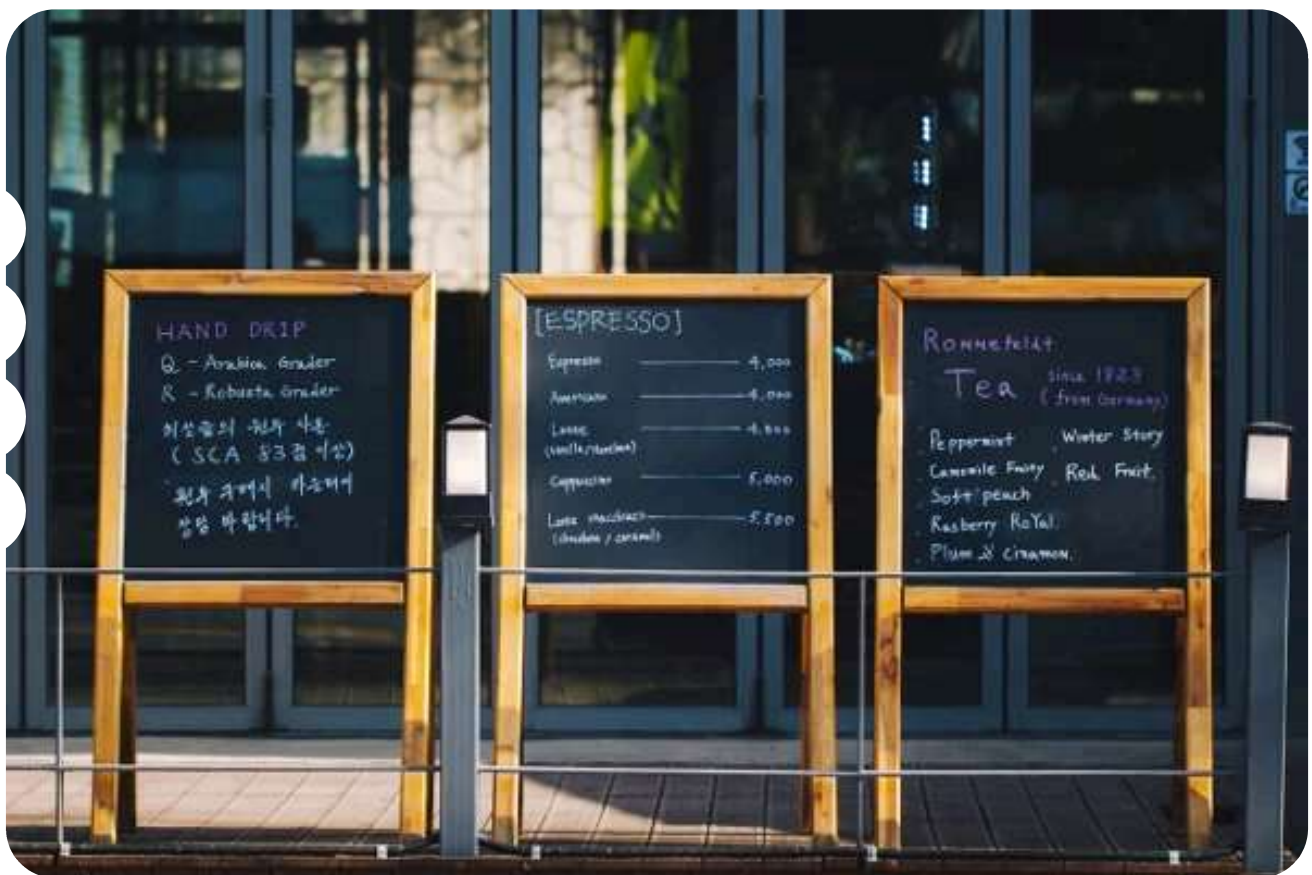 HAND DRIP
Q - Arabica Grader
R - Robusta Grader
최상급의 원두 사용
( SCA 83점 이상)
원두 구매시 마스터에
상담 바랍니다.
[ESPRESSO]
Espresso 4,000
Americano 4,000
Latte 4,500
(vanilla/
Cappuccino 5,000
Latte macchiato 5,500
/ caramel)
Ronnefeldt
Tea since 1823
(from Germany)
Peppermint
Camomile Fruity
Soft peach
Rasberry RoYal
Plum & cinamon.
Winter Story
Red Fruit.